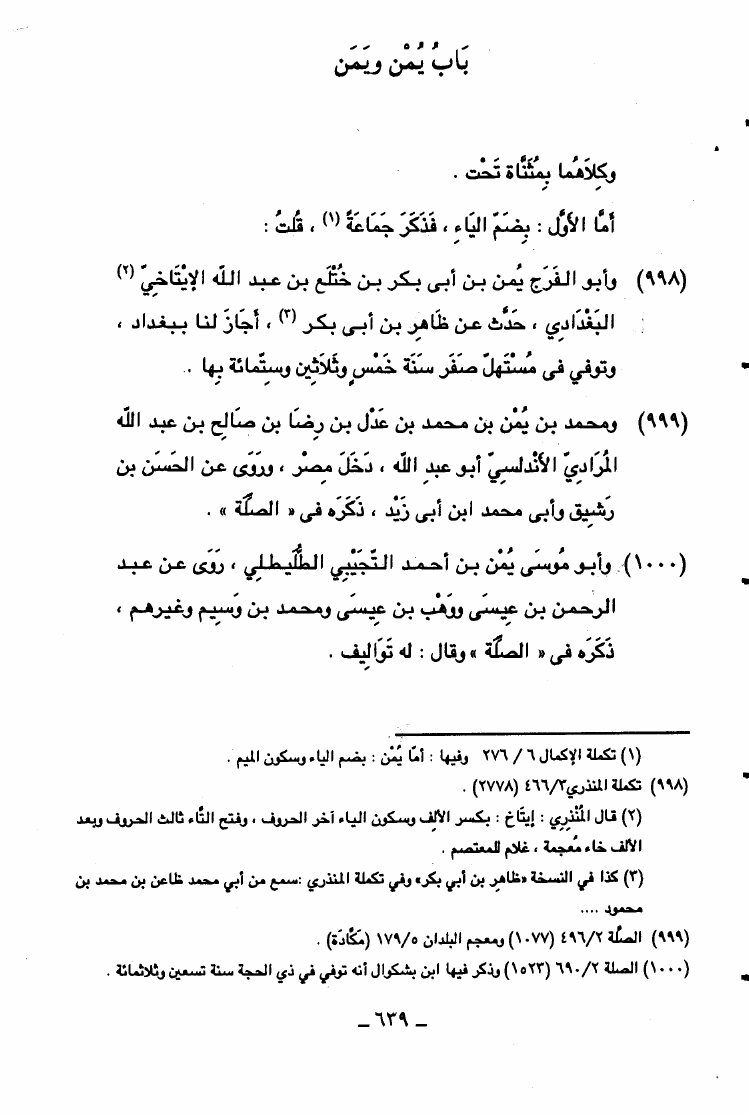 بَابُ يُمْن ويَمَن
وكِلاَهُما بِمُثَنَّاة تَحْت .
أمَّا الأوَّل : بِضَمّ اليَاءِ ، فَذَكَرَ جَمَاعَةٌ (١) ، قُلتُ :
(٩٩٨) وأبو الفَرَج يُمن بن أبى بكر بن خُتْلَع بن عبد الله الإيْتَاخيّ (٢)
البَغْدَادِي ، حَدَّث عن ظَاهِر بن أبى بكر (٣) ، أجَازَ لنا ببغداد ،
وتوفي فى مُسْتَهلّ صفَر سنَة خَمْسٍ وثَلاَثِين وسِتّمائة بِها .
(٩٩٩) ومحمد بن يُمْن بن محمد بن عَدْل بن رِضَا بن صَالِح بن عبد الله
المُرَادِيّ الأنْدلسِيّ أبو عبد الله ، دَخَلَ مِصْر ، ورَوَى عن الحَسَن بن
رَشِيق وأبى محمد ابن أبى زَيْد ، ذَكَرَه فى « الصلَّة » .
(١٠٠٠) وأبو مُوسَى يُمْن بن أحمد التُّجَيْبِي الطُّلَيطلي ، رَوَى عن عبد
الرحمن بن عِيسَى ووَهْب بن عِيسَى ومحمد بن وَسِيم وغيرهم ،
ذَكَرَه فى « الصلَّة » وقال : له تَوَالِيف .
(١) تكملة الإكمال ٦ / ٢٧٦ وفيها : أمّا يُمْن : بضم الياء وسكون الميم .
(٩٩٨) تكملة المنذري ٤٦٦/٣ (٢٧٧٨) .
(٢) قال المُنْذِرِي : إيتَاخ : بكسر الألف وسكون الياء آخر الحروف ، وفتح التَّاء ثالث الحروف وبعد
الألف خاء مُعجمة ، غلام للمعتصم .
(٣) كذا في النسخة «ظاهر بن أبي بكر» وفي تكملة المنذري :سمع من أبي محمد ظاعن بن محمد بن
محمود ....
(٩٩٩) الصلَّة ٤٩٦/٢ (١٠٧٧) ومعجم البلدان ١٧٩/٥ (مَكَّادَة) .
(١٠٠٠) الصلة ٦٩٠/٢ (١٥٢٣) وذكر فيها ابن بشكوال أنه توفي في ذي الحجة سنة تسعين وثلاثمائة .
– ٦٣٩ –